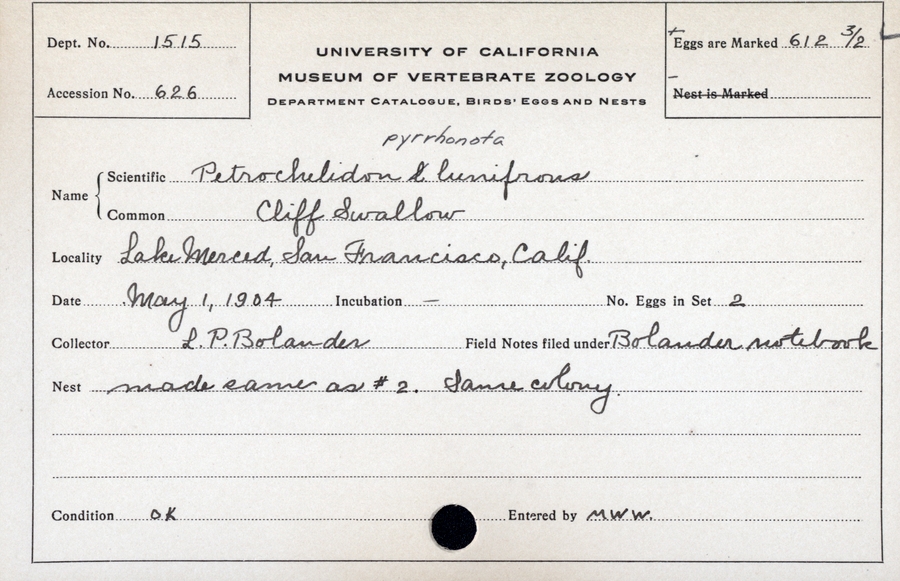 Dept. No. 1515
Accession No. 626
UNIVERSITY OF CALIFORNIA
MUSEUM OF VERTEBRATE ZOOLOGY
DEPARTMENT CATALOGUE, BIRDS' EGGS AND NESTS
Eggs are Marked 612 3/2
Nest is Marked
pyrrhonota
Name
Scientific Petrochelidon l. lunifrons
Common Cliff Swallow
Locality Lake Merced, San Francisco, Calif.
Date May 1, 1904 Incubation — No. Eggs in Set 2
Collector L. P. Bolander Field Notes filed under Bolander notebook
Nest made same as # 2. Same colony.
Condition OK Entered by MWW.